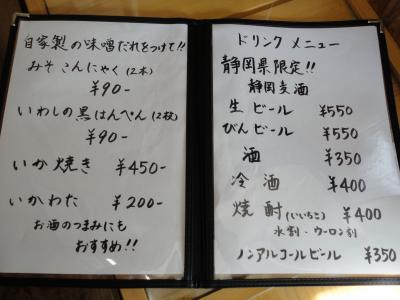 自家製の味噌だれをつけて!!
みそこんにゃく(2本)
¥90-
いわしの黒はんぺん(2枚)
¥90-
いか焼き ¥450-
いかわた ¥200-
お酒のつまみにも
おすすめ!!
ドリンクメニュー
静岡県限定!!
静岡麦酒
生ビール ¥550
びんビール ¥550
酒 ¥350
冷酒 ¥400
焼酎(いいちこ) ¥400
水割・ウーロン割
ノンアルコールビール ¥350